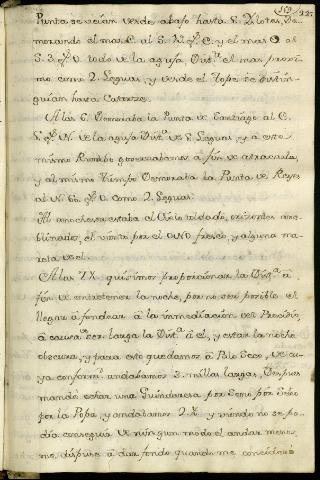 Punta, se veían desde abajo hasta 8. Islotes, De-
morando el mas E. al S. 12 gs. E. y el mas O. al
S. 3. gs. O. todo de la aguja Dista. el mas proxi-
mo como 2. Leguas, y desde el Tope se distin-
guian hasta Catorze.
A las 6. Demoraba la Punta de Santiago al E.
gs. N. de la aguja Dista. de 8. Leguas, y a este
mismo Rumbo governabamos a fin de atracarla,
y al mismo tiempo Demoraba la Punta de Reyes
al N. 66. gs. O. como 2. Leguas.
Al anochecer estaba el Cielo toldado, orizontes ane-
blinados, el viento por el ONO fresco, y alguna ma-
reta de el.
A las 7 ½ quisimos proporcionar la Dista. a
fin de entretener la noche, por no ser posible el
llegar a fondear a la inmediacion del Presidio,
a causa de ser larga la Dista. a el, y estar la noche
obscura, y para esto quedamos a Palo Seco, de cu-
ya conformd. andabamos 3. millas largas, Despues
mandé echar una Guindaresa por Seno por Seno
por la Popa, y andabamos 2 ½ y viendo no se po-
dia conseguir de ningun modo el andar menos,
me dispuse a dar fondo quando me considerase